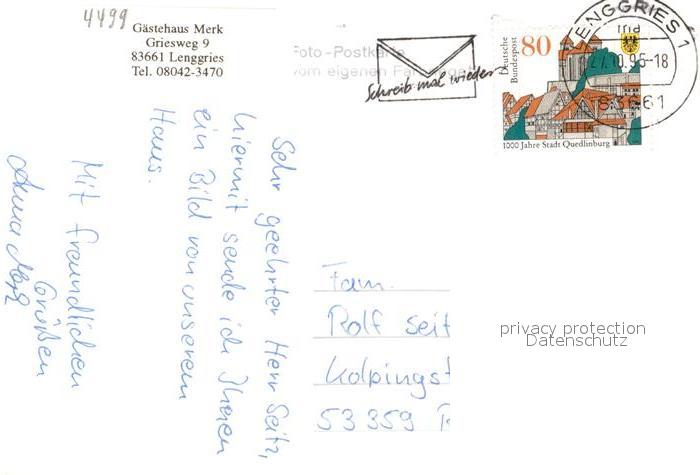 4499
Gästehaus Merk
Griesweg 9
83661 Lenggries
Tel. 08042-3470
Foto-Postkarte
vom eigenen
Schreib mal wieder
Deutsche
Bundespost
80
1000 Jahre Stadt Quedlinburg
LENGGRIES 1
-18
83661
Sehr geehrter Herr Seitz,
hiermit sende ich Ihnen
ein Bild von unserem
Haus.
Mit freundlichen
Grüßen
Anna
Fam.
Rolf Seit
Kolpingst
53359
privacy protection
Datenschutz